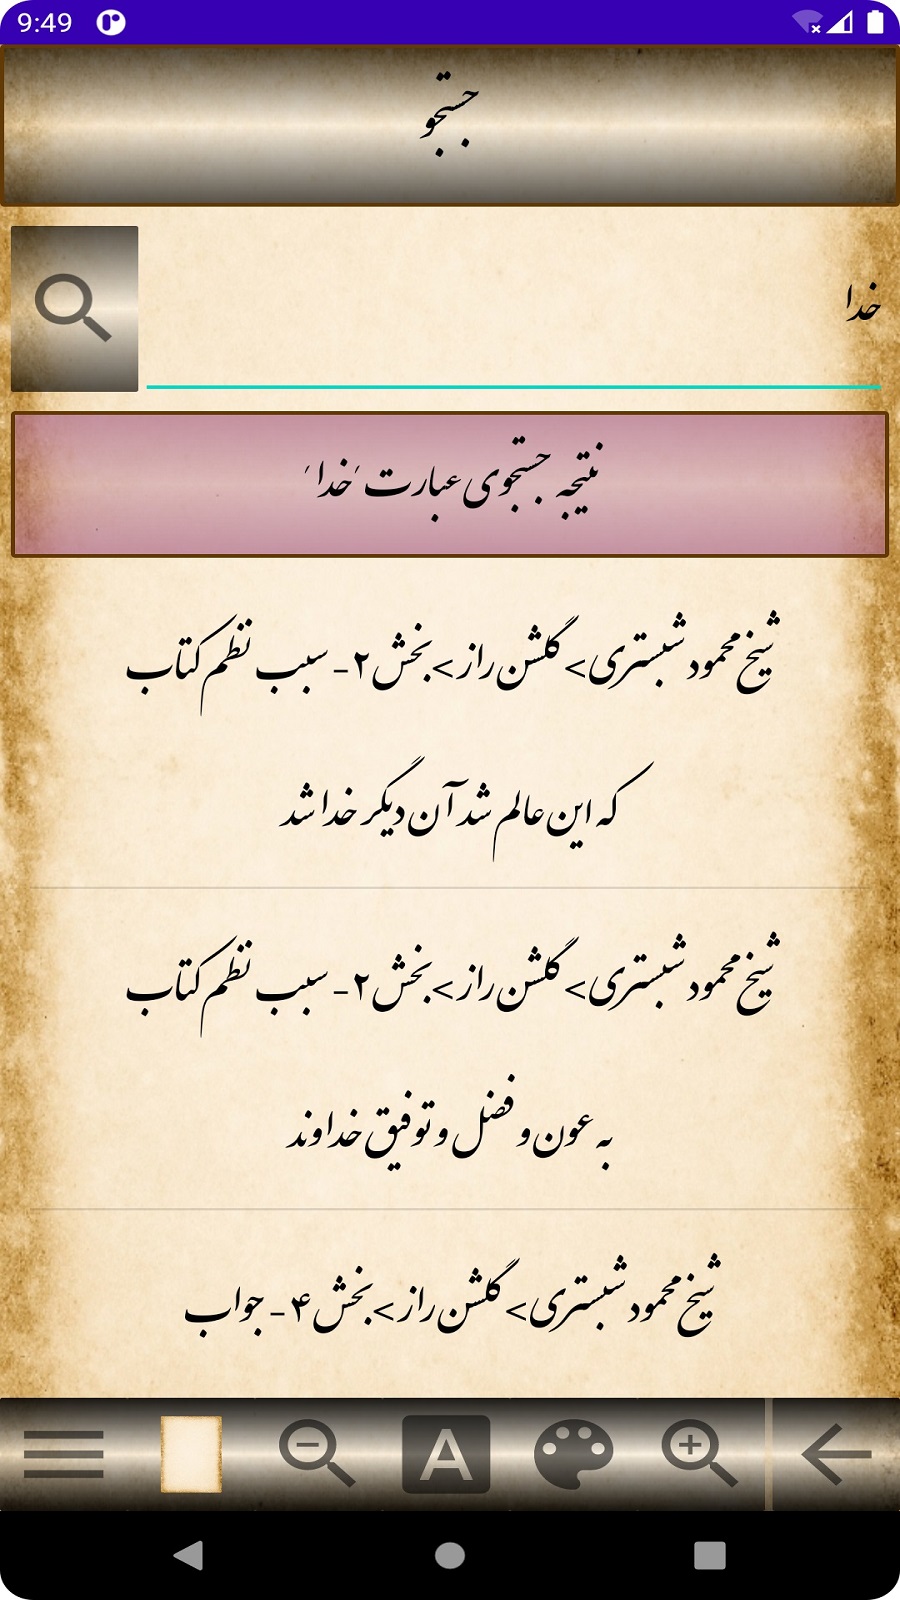 9:49
جستجو
خدا
نتیجه جستجوی عبارت 'خدا'
شیخ محمود شبستری > گلشن راز > بخش ۲ - سبب نظم کتاب
که این عالم شد آن دیگر خدا شد
شیخ محمود شبستری > گلشن راز > بخش ۲ - سبب نظم کتاب
به عون و فضل و توفیق خداوند
شیخ محمود شبستری > گلشن راز > بخش ۴ - جواب
A